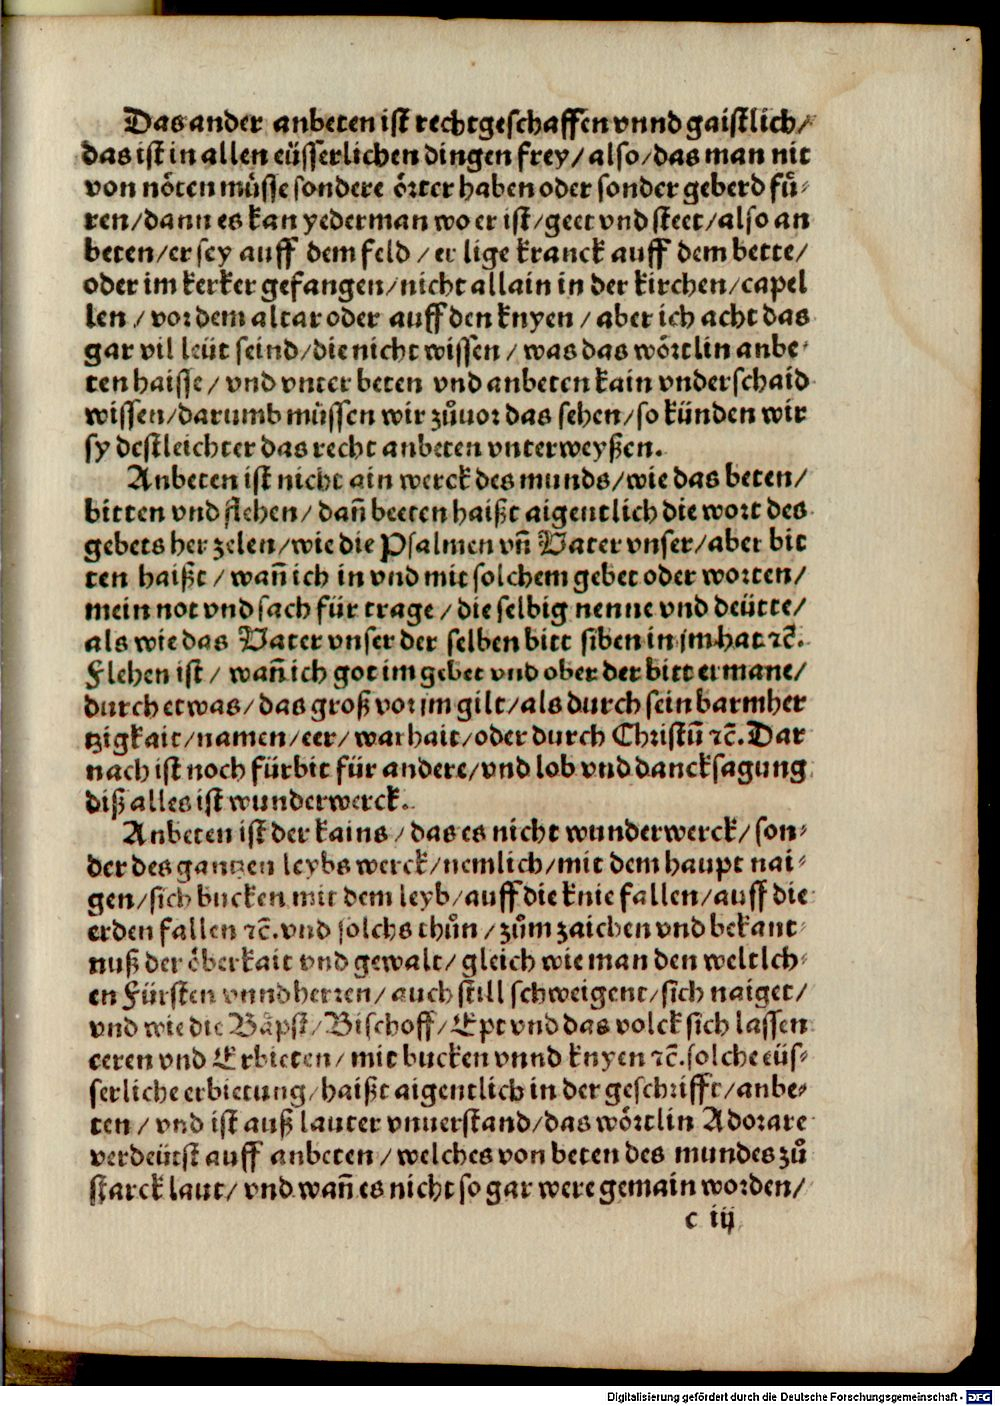 Das ander anbeten ist rechtgeschaffen vnnd gaistlich/
das ist in allen eüsserlichen dingen frey/ also/ das man nit
von nöten müsse sondere örter haben oder sonder geberd fuͤ⸗
ren/ dann es kan yederman wo er ist/ geet vnd steet/ also an
beten/ er sey auff dem feld / er lige kranck auff dem bette/
oder im kerker gefangen/ nicht allain in der kirchen/ capel
len / vor dem altar oder auff den knyen / aber ich acht das
gar vil leüt seind/ die nicht wissen / was das wörtlin anbe⸗
ten haisse / vnd vnter beten vnd anbeten kain vnderschaid
wissen/ darumb müssen wir zuͦuor das sehen/ so künden wir
sy destleichter das recht anbeten vnterweyßen.
Anbeten ist nicht ain werck des munds/ wie das beten/
bitten vnd flehen/ dañ beeten haißt aigentlich die wort des
gebets her zelen/ wie die Psalmen vñ Vater vnser/ aber bit
ten haißt / wañ ich in vnd mit solchem gebet oder worten/
mein not vnd sach für trage / die selbig nenne vnd deütte/
als wie das Vater vnser der selben bitt siben in jm hat ꝛc̄.
Flehen ist / wañ ich got im gebet vnd ober der bitt ermane/
durch etwas/ das groß vor jm gilt/ als durch sein barmher
tzigkait/ namen/ eer/ warhait/ oder durch Christū ꝛc̄. Dar
nach ist noch fürbit für andere/ vnd lob vnd dancksagung
diß alles ist wunderwerck.
Anbeten ist der kains / das es nicht wunderwerck/ son⸗
der des gantzen leybs werck/ nemlich/ mit dem haupt nai⸗
gen/ sich bucken mit dem leyb/ auff die knie fallen/ auff die
erden fallen ꝛc̄. vnd solchs thuͦn / zuͦm zaichen vnd bekant⸗
nuß der öberkait vnd gewalt/ gleich wie man den weltlch⸗
en Fürsten vnnd herren/ auch still schweigent/ sich naiget/
vnd wie die Bäpst/ Bischoff/ Ept vnd das volck sich lassen
eeren vnd Erbieten/ mit bucken vnnd knyen ꝛc̄. solche eüs⸗
serliche erbietung/ haißt aigentlich in der geschrifft/ anbe⸗
ten / vnd ist auß lauter vnuerstand/ das wörtlin Adorare
verdeütst auff anbeten / welches von beten des mundes zuͦ
starck laut/ vnd wañ es nicht so gar were gemain worden/
c iij
Digitalisierung gefördert durch die Deutsche Forschungsgemeinschaft - DFG